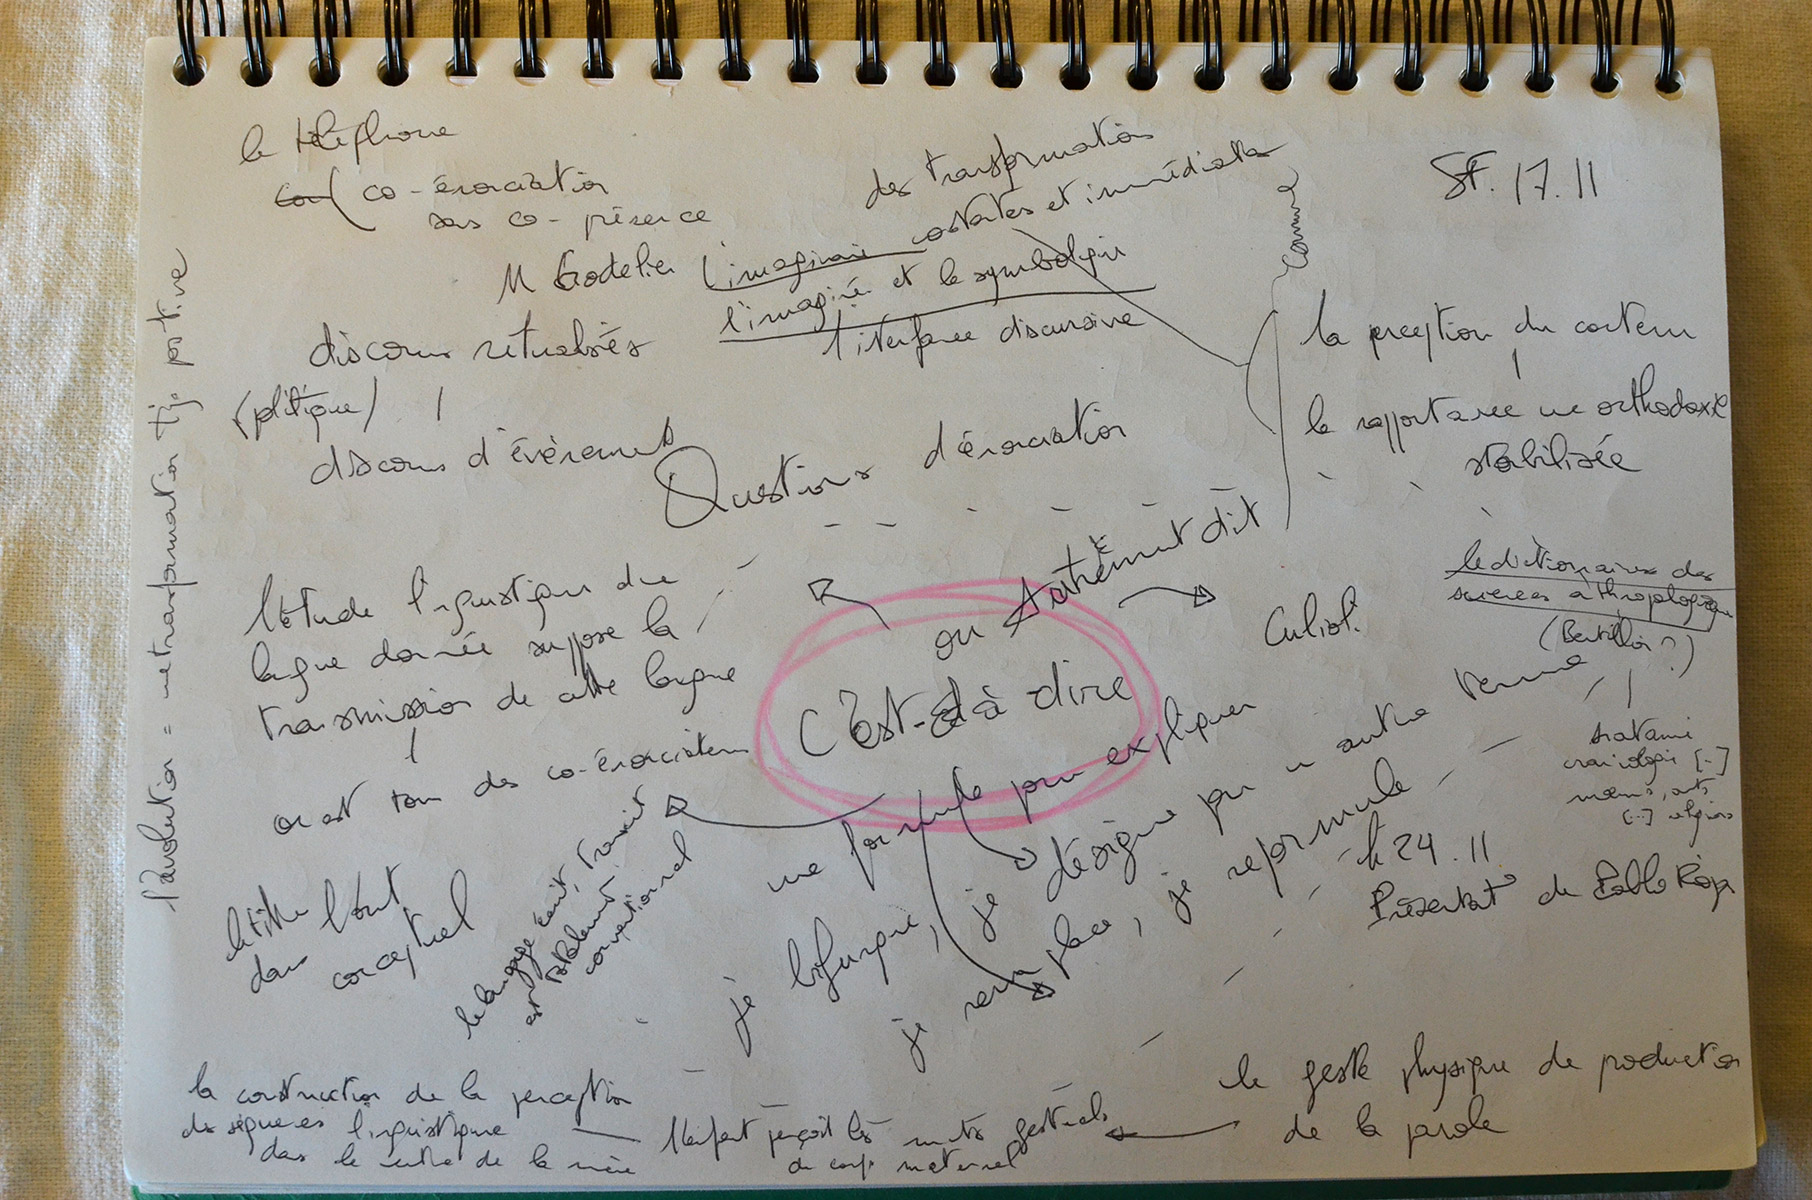 le téléphone
co-énonciation
sans co-présence
des transformations
constantes et immédiates
comme
SF. 17.11
M Godelier l'imaginaire
l'imaginé et le symbolique
l'interface discursive
discours ritualisés
(politique)
discours d'évènements
la perception du contenu
le rapport avec une orthodoxie
stabilisée
Questions d'énonciation
ou Autrement dit
C'est-à dire
Culioli
le dictionnaire des
sciences anthropologiques
(Bertillon ?)
anatomie
craniologie [-]
moeurs, arts
[-] religions
L'étude linguistique d'une
langue donnée suppose la
transmission de cette langue
on est tous des co-énonciateurs
l'évolution = une transformation positive
une formule pour expliquer
je bifurque, je désigne par un autre terme
je remplace, je reformule
le 24.11
Présentat° de Pablo
dans
conceptuel
le langage écrit, transcrit
est totalement
conventionnel
la construction de la perception
des séquences linguistique
dans le ventre de la mère
l'enfant perçoit les gestuels
du corps maternel
le geste physique de production
de la parole